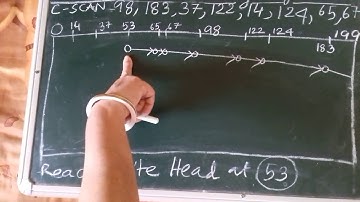 C-SCAN 98, 183, 37, 122, 14, 124, 65, 67
0 14 37 53 65 67 98 122 124 199
183
Head at 53